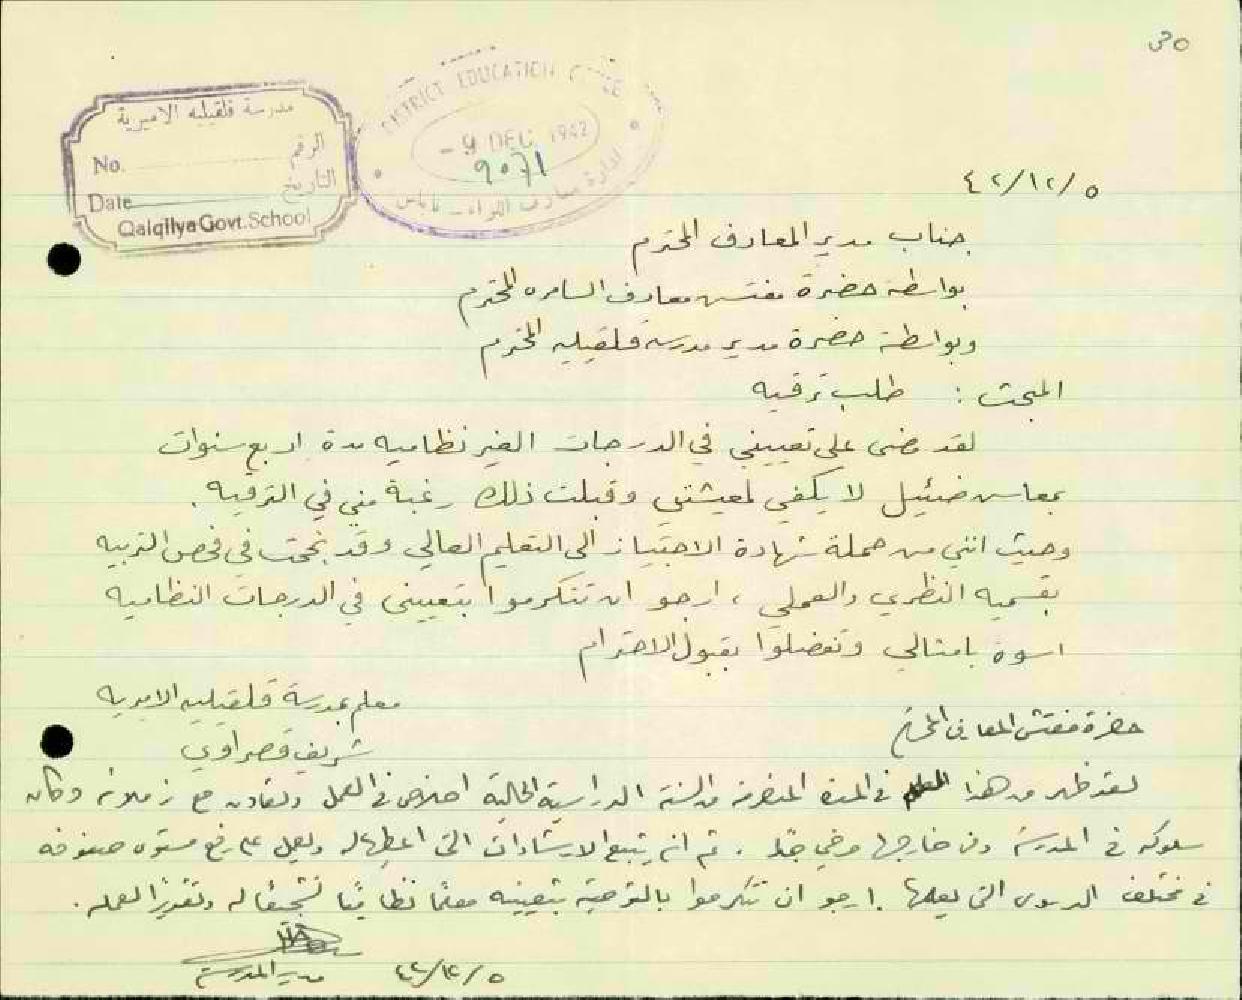 مدرسة قلقيلية الاميرية
No. الرقم
Date التاريخ
Qalqilya Govt. School
DISTRICT EDUCATION
- 9 DEC 1942
9071
٤٢/١٢/٥
جناب مدير المعارف المحترم
بواسطة حضرة مفتش معارف السامره المحترم
وبواسطة حضرة مدير مدرسة قلقيليه المحترم
المبحث : طلب ترقيه
لقد مضى على تعييني في الدرجات الغير نظاميه مدة اربع سنوات
بمعاش ضئيل لا يكفي لمعيشتي وقبلت ذلك رغبة مني في الترقيه .
وحيث انني من حملة شهادة الاجتياز الى التعليم العالي وقد نجحت في فحص التربيه
بقسميه النظري والعملي ، ارجو ان تتكرموا بتعييني في الدرجات النظاميه
اسوة بامثالي وتفضلوا بقبول الاحترام
معلم بمدرسة قلقيليه الاميريه
شريف قصراوي
حضرة مفتش المعارف المحترم
لقد ظهر من هذا المعلم في المدة المنصرمة من السنة الدراسية الحالية اخلاص في العمل وتعاون مع زملائه وكان
سلوكه في المدرسة وفي خارجها مرضي جدا . ثم انه يتبع الارشادات التي اعطيها له ويعمل على رفع مستوى صفوفه
في مختلف الدروس التي يعلمها . ارجو ان تتكرموا بالتوصية بتعيينه معلمًا نظاميًا تشجيعًا له وتقديرًا لعمله .
مدير المدرسة ٤٢/١٢/٥